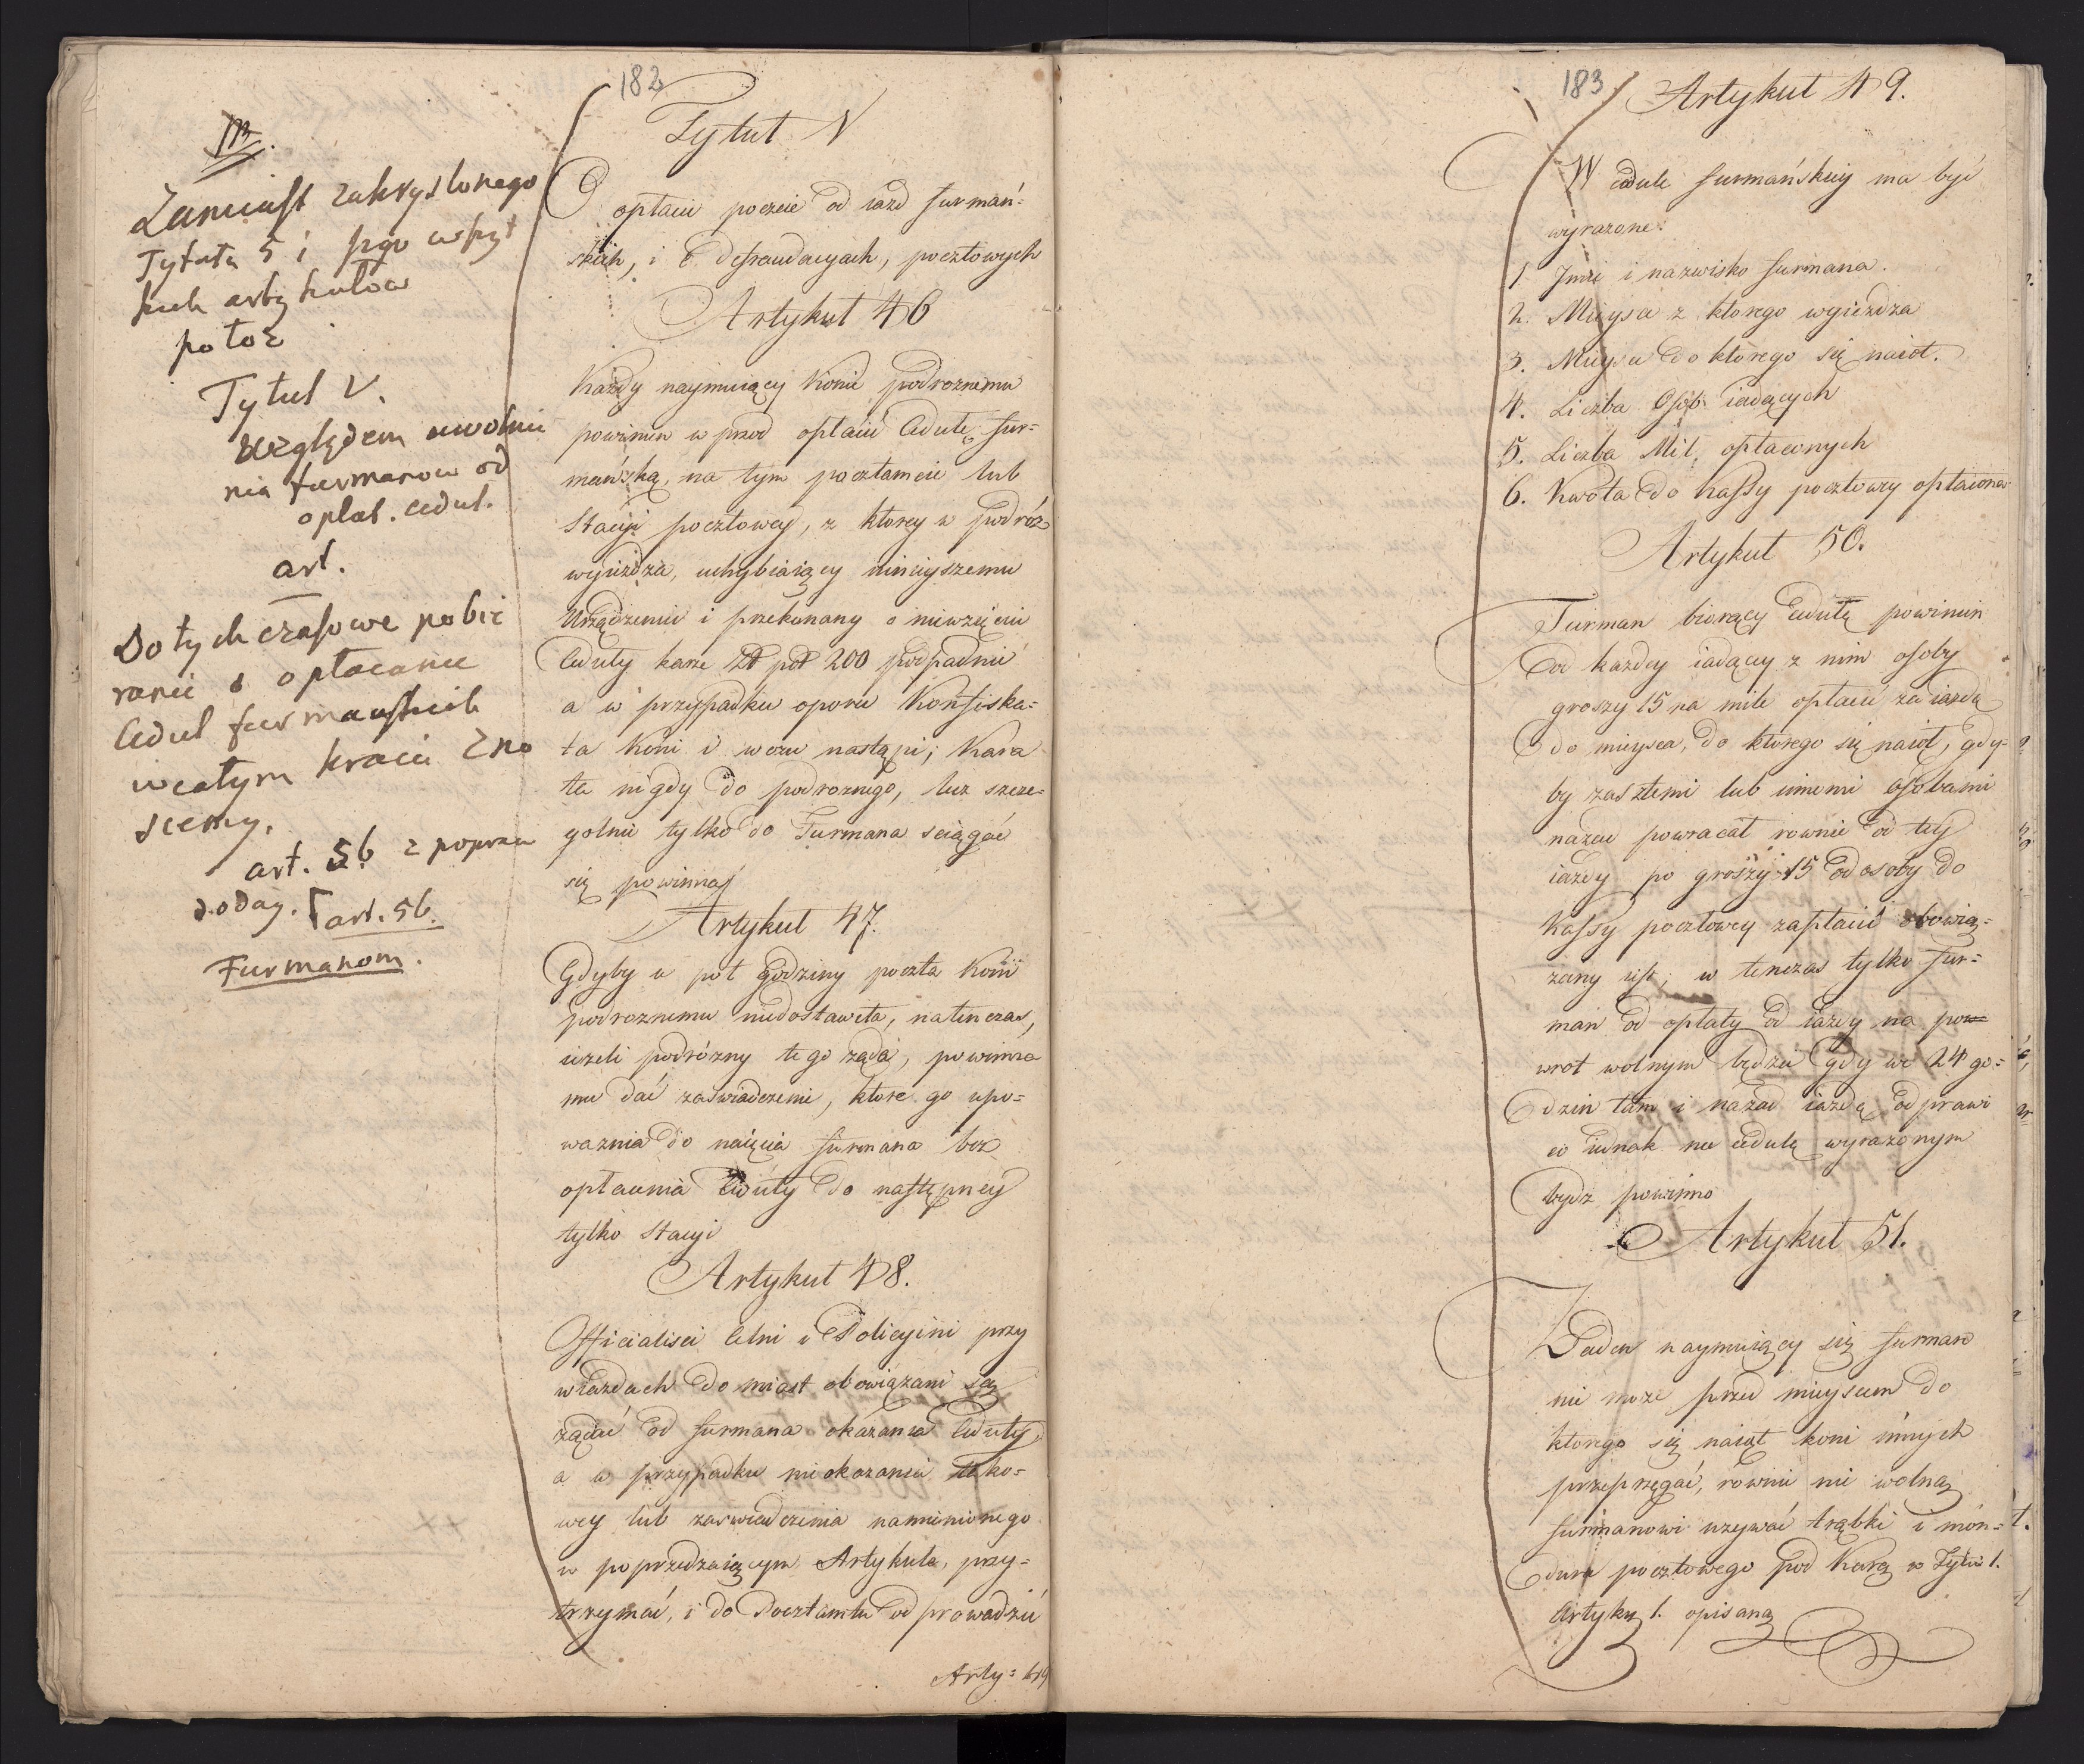 182
Zamiast zakryslonego
Tytułu 5 i jego wszyst
kich artykułow
położ
Tytul V.
Względem uwolnie
nia furmanow od
oplat. cedul.
art.
Dotychczasowe pobie
ranie i opłacanie
Cedul furmanskich
w całym kraiu zno
siemy.
art. 56 z poprzed
doday. art. 56.
Furmanom.
Tytuł V
O opłacie poczcie od iazd furmań=
skich, i o defraudacyach, pocztowych
Artykuł 46
Każdy naymuiący Konie podroznemu
powinien wprzod opłacić Cedułę fur=
mańską, na tym pocztamcie lub
Stacyi pocztowey, z ktorey w podróż
wyieżdża, uchybiaiący ninieyszemu
Urządzeniu i przekonany o niewzięciu
Ceduły karze Zł pol 200 podpadnie
a w przypadku oporu Konfiska=
ta Koni i wozu nastąpi; Kara
ta nigdy do podroznego, lecz szcze=
golnie tylko do Furmana sciągać
się powinna
Artykuł 47.
Gdyby w poł godziny poczta Koni
podroznemu niedostawiła, natenczas,
ieżeli podrózny tego ząda, powinna
mu dać zaswiadczenie, ktore go upo=
waznia do naięcia furmana bez
opłacenia Ceduły do następney
tylko Stacyi
Artykuł 48.
Officialisci Celni i Policyini przy
wiazdach do miast obowiązani są
ządać od furmana okazania Ceduły,
a w przypadku nieokazania tako=
wey lub zaswiadczenia namienionego
w poprzedzaiącym Artykule, przy=
trzymać, i do Pocztamtu odprowadzić
Arty= 49
183
Artykuł 49.
W cedule furmańskiey ma być
wyrazone:
1. Jmie i nazwisko furmana.
2. Mieysce z ktorego wyieżdza
3. Mieysce do ktorego się naioł.
4. Liczba Osob iadących
5. Liczba Mil, opłaconych
6. Kwota do Kassy pocztowey opłacona
Artykuł 50.
Furman biorący Cedułę powinien
od kazdey iadącey z nim osoby
groszy 15 na mile opłacić za iazdę
do mieysca, do ktorego się naioł, gdy=
by zas z temi lub innemi osobami
nazad powracał rownie od tey
iazdy po groszy 15 od osoby do
Kassy pocztowey zapłacić obowią=
zany iest, w tenczas tylko fur=
man od opłaty od iazdy na pow
wrot wolnym będzie gdy we 24 go=
dzin tam i nazad iazdę odprawi
co iednak na cedule wyrazonym
bydz powinno
Artykuł 51.
Zaden naymuiący się furman
nie moze przed mieyscem do
ktorego się naioł koni innych
przeprzęgać, rownie nie wolno
furmanowi uzywać trąbki i mon=
duru pocztowego pod Karą w Tytule 1.
Artykuł 1. opisaną